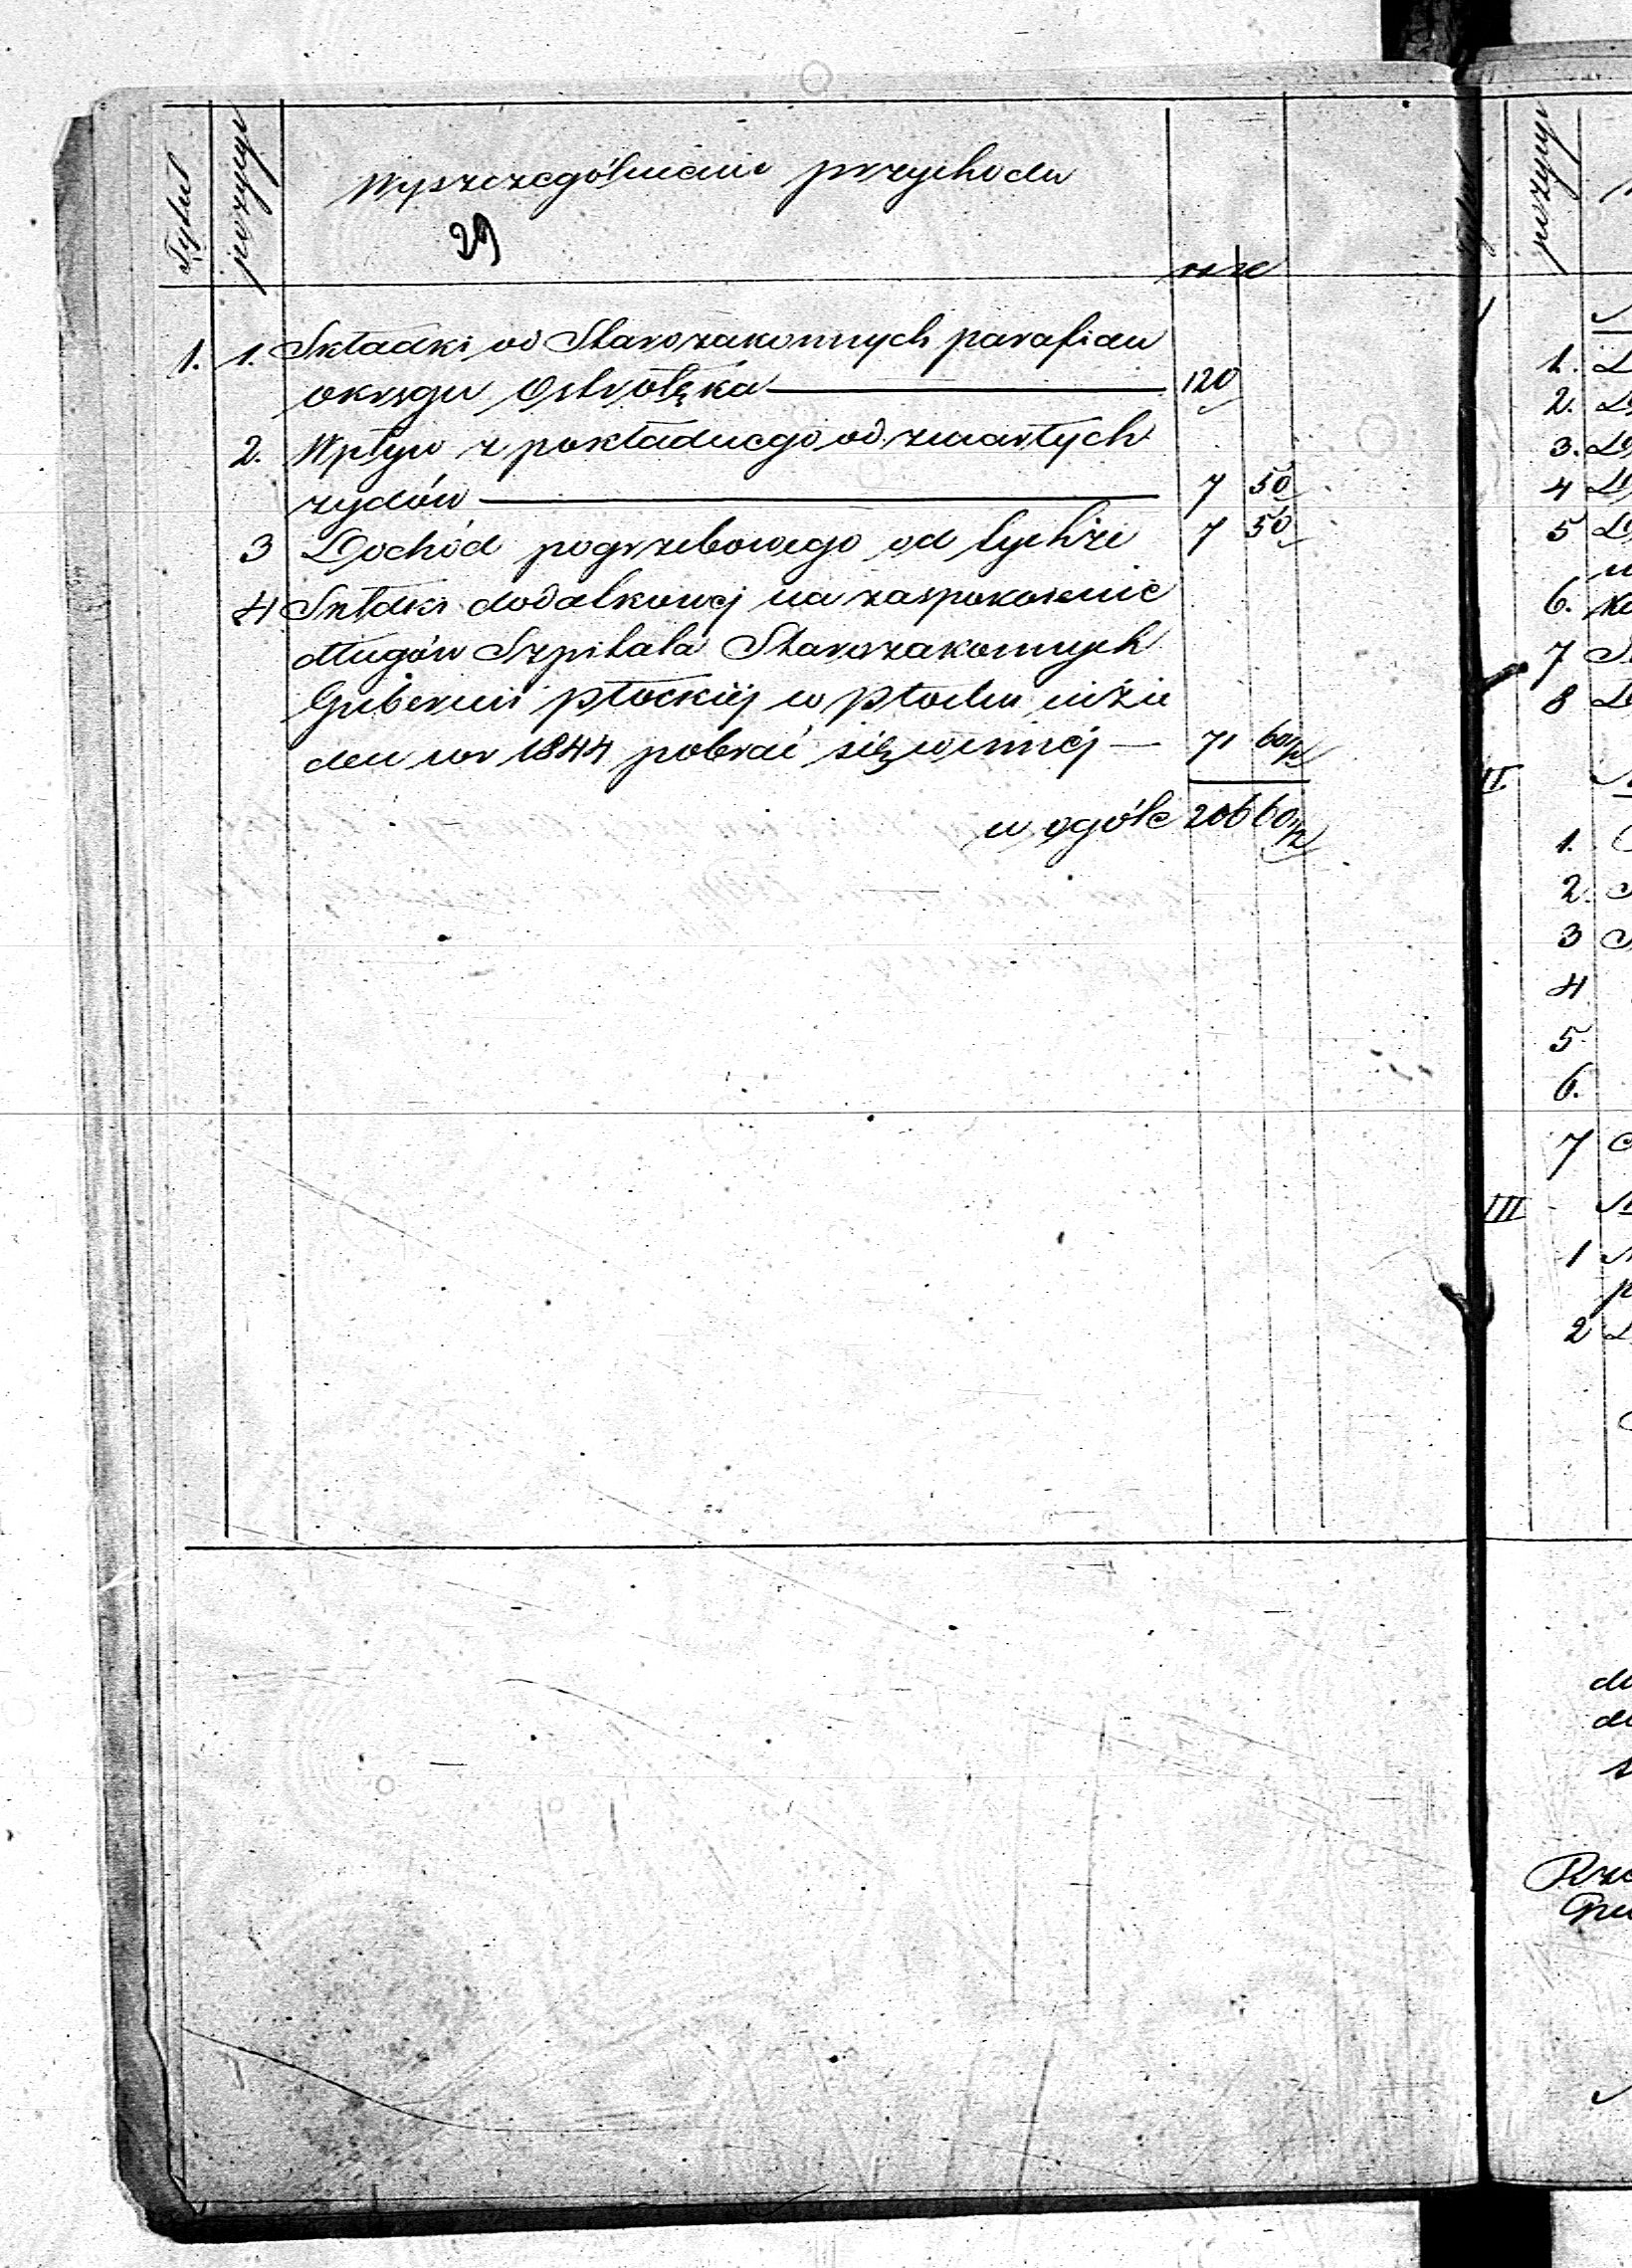 Tytuł
pozycye
Wyszczególnienie przychodu
29
1. 1. Składki od Starozakonnych parafian
okręgu Ostrołęka 120
2. Wpływ z pokładnego od zmarłych
zydów 7 50
3 Dochód pogrzebowego od tychże 7 50
4 Składki dodatkowej na zaspokojenie
długów Szpitala Starozakonnych
Gubernii płockiej w Płocku
den w r 1844 pobrać się winnej 71 60 1/2
w ogóle 206 60 1/2
pozycye
1.
2.
3.
4
5
6.
7
8
II.
1.
2.
3
4
5
6.
7
III
1
2